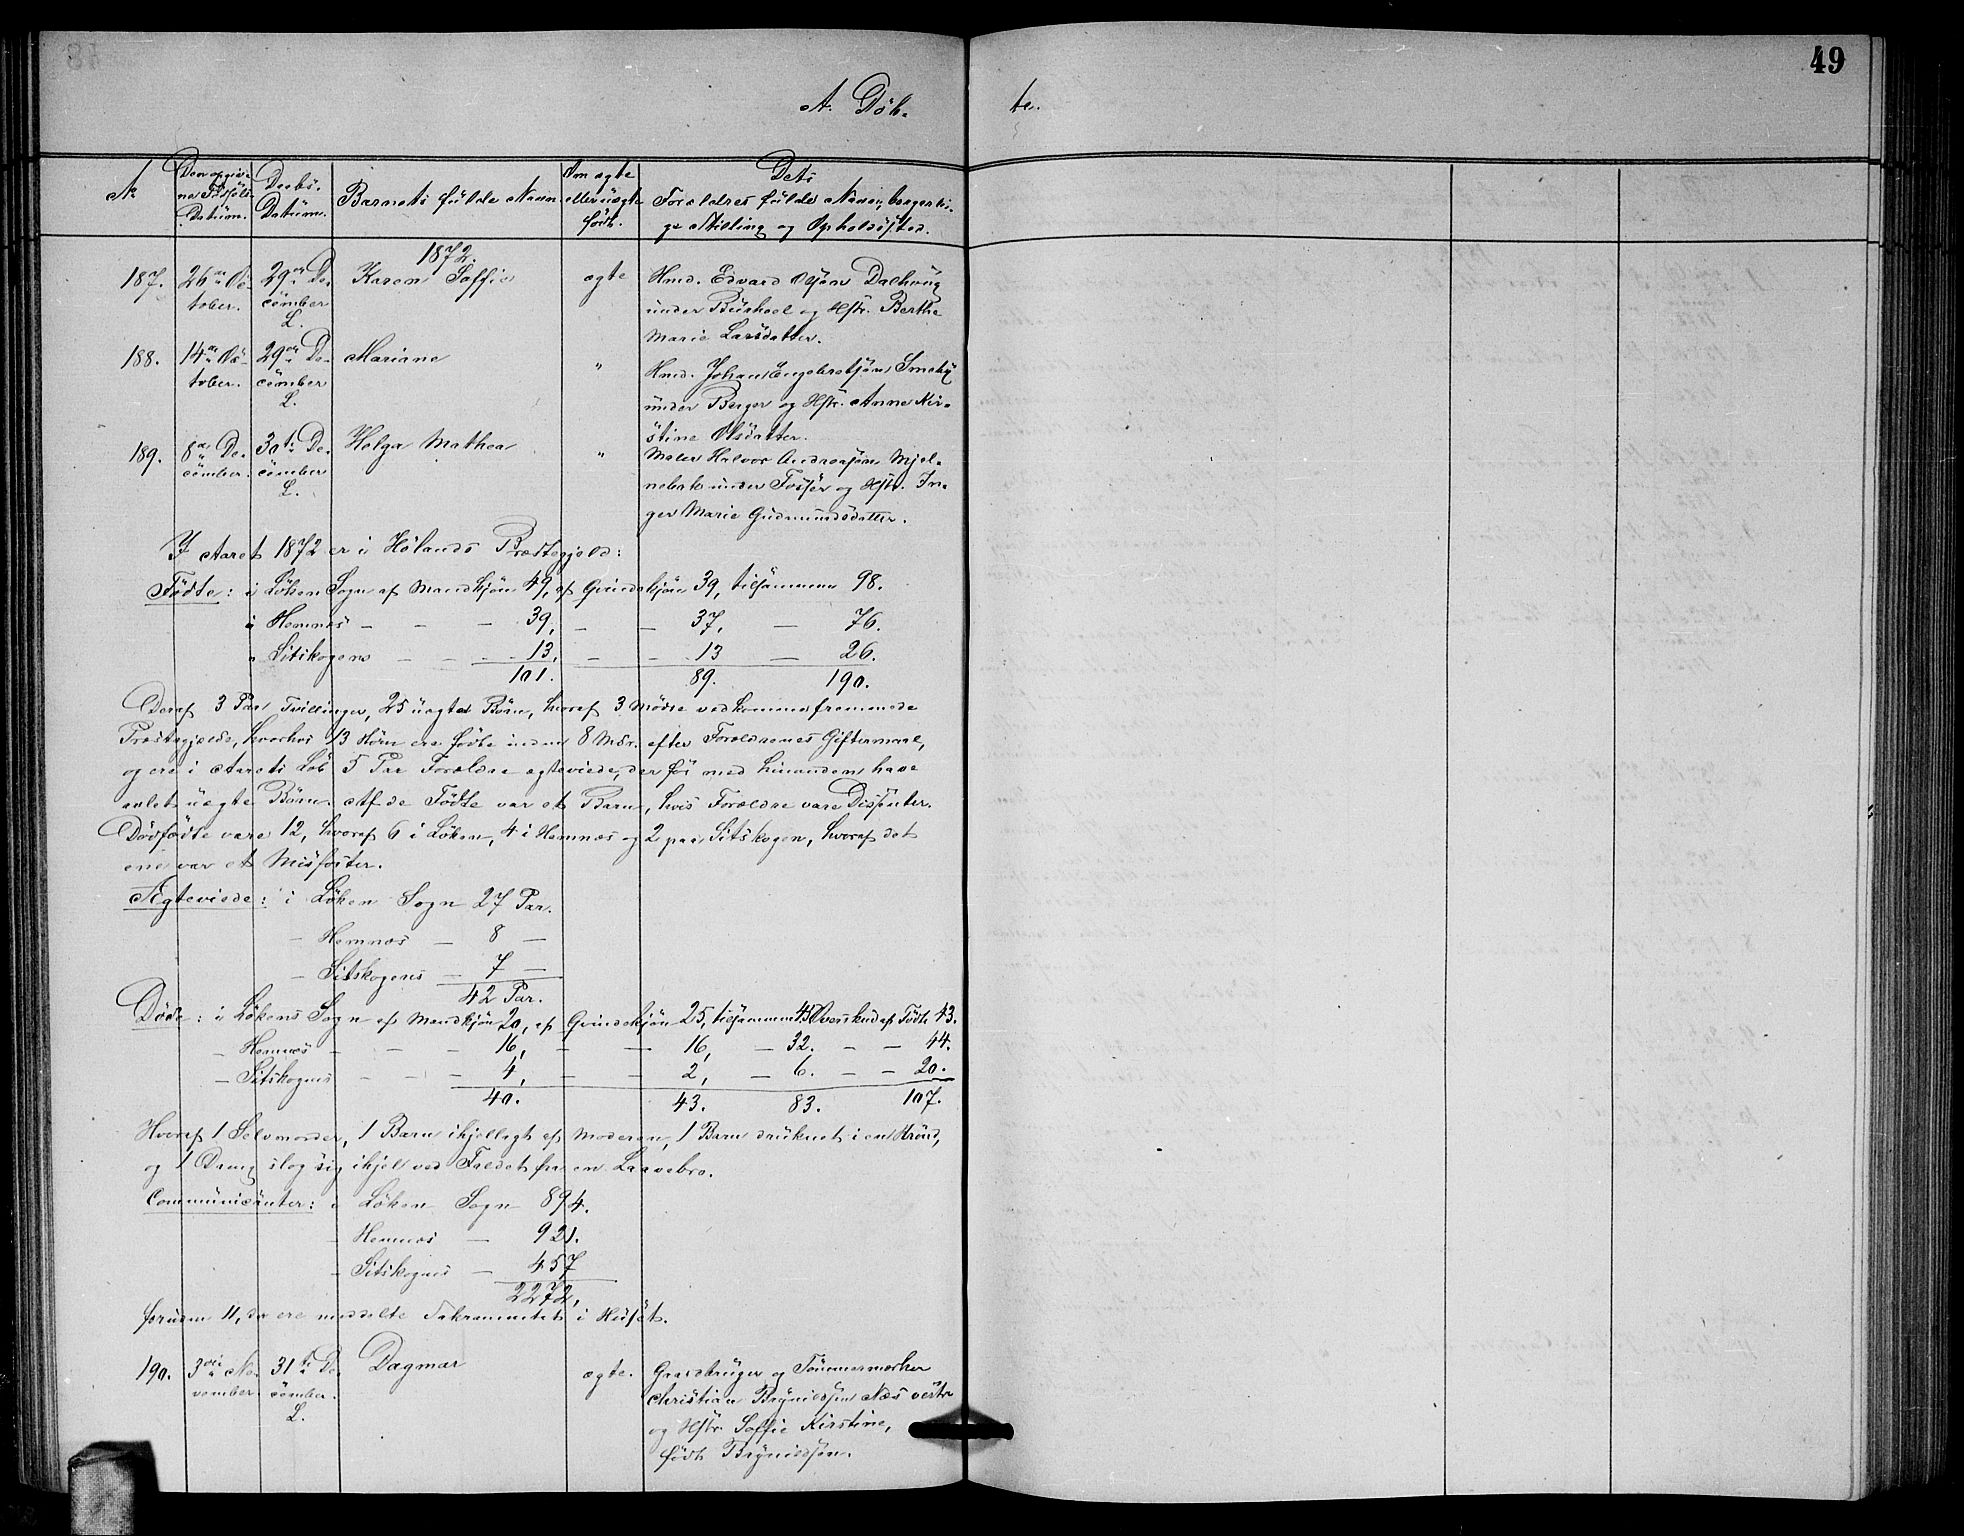 49
A. Döb-
te.
Dets
№
Den opgiv-
ne Födsels
Datüm.
Daabs-
Datüm.
Barnets fülde Navn
Om ægte
eller üægte
födt.
Forældres fülde Navn, borgerli-
ge Stilling og Opholdssted.
1872.
187. 26de Oc- 29de De- Karen Soffie ægte Hmd. Edvard Olsön Dalhoüg
tober. cember ünder Büshoel og Hstr. Berthe
L. Marie Larsdatter.
188. 14de Oc- 29de De- Mariane " Hmd. Johan Engebretsön Smeby
tober. cember ünder Berger og Hstr. Anne Kir-
L. stine Olsdatter.
189. 8de De- 30te De- Helga Mathea " Maler Halvor Andreasön Mjel-
cember. cember nebak ünder Fosser og Hstr. In-
L. ger Marie Güdmündsdatter.
I Aaret 1872 er i Hölands Præstegjeld:
Födte: i Löken Sogn af Mandkjön 49, af Qvindekjön 39, tilsammen 98.
i Hemnes — — — 39, — — 37, — 76.
" Sitskogens — — — 13, — — 13 — 26.
101. 89. 190.
Deraf 3 Par Tvillinger, 25 üægte Börn, hvoraf 3 Mödre vedkomme fremmede
Præstegjelde, hvorhos 13 Börn ere födte inden 8 Mdr. efter Forældrenes Giftermaal,
og ere i Aarets Löb 5 Par Forældre ægteviede, der för med hinanden have
avlet üægte Börn. Af de Födte var et Barn, hvis Forældre vare Dissenter.
Dödfödte vare 12, hvoraf 6 i Löken, 4 i Hemnæs og 2 paa Sitskogen, hvoraf det
ene var et Misfoster.
Ægteviede: i Löken Sogn 27 Par.
— Hemnæs — 8 —
— Sitskogens — 7 —
42 Par.
Döde: i Lökens Sogn af Mandkjön 20, af Qvindekjön 25, tilsammen 45 Overskud af Födte 43.
— Hemnæs — — — 16, — — 16, — 32. — — 44.
— Sitskognes — — — 4, — — 2, — 6. — — 20.
40. 43. 83. 107.
Hvoraf 1 Selvmorder, 1 Barn ihjellagt af Moderen, 1 Barn drüknet i en Brönd,
og 1 Dreng slog sig ihjel ved Faldet fra en Laavebro.
Communicanter: i Löken Sogn 894.
— Hemnæs — 921.
— Sitskognes — 457
2272,
foruden 11, der ere meddelte Sakramentet i Hüset.
190. 3die No- 31te De- Dagmar ægte. Gaardbrüger og Tömmermærker
vember cember. Christian Brynildsen Næs vestre
L. og Hstr. Soffie Kirstine,
födt Brynildsen.